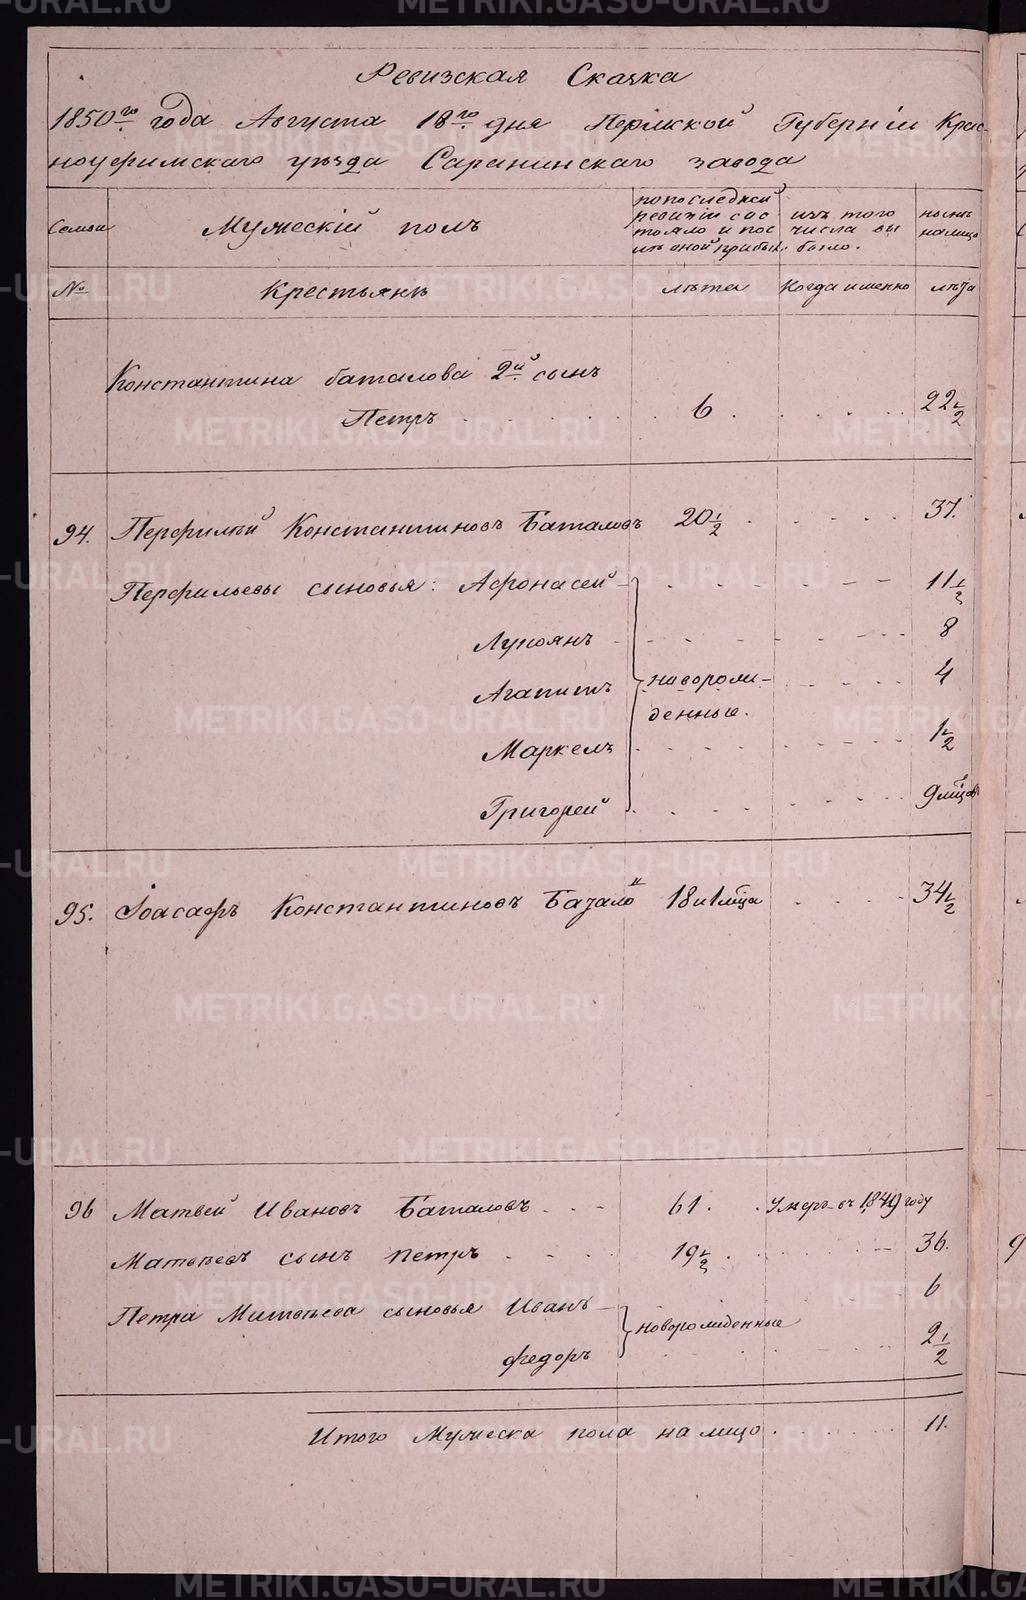 Ревизская Сказка
1850го года Августа 18го дня Пермской Губерніи Крас-
ноуфимскаго уезда Саранинскаго завода
Семьи
Мужескій полъ
по последней ревизіи сос тояло и пос ле оной прибыл.
изъ того числа вы было.
ныне на лицо
№
Крестьянъ
лета
Когда именно
лета
Константина баталова 2й сынъ
Петръ 6 22 1/2
94. Перфилъй Константиновъ Баталовъ 20 1/2 37.
Перфильевы сыновья: Афонасей 11 1/2
Лукоянъ 8
Агапитъ новорож- 4
денные.
Маркелъ 1 1/2
Григорей 9 мцов
95. Іоасафъ Константиновъ Батало 18 и 1 мца 34 1/2
96 Матвей Ивановъ Баталовъ 61. Умеръ въ 1849 году
Матвеевъ сынъ Петръ 19 1/2 36.
Петра Матвеева сыновья Иванъ 6
новорожденные
Федоръ 2 1/2
Итого Мужеска пола на лицо 11.
METRIKI.GASO-URAL.RU